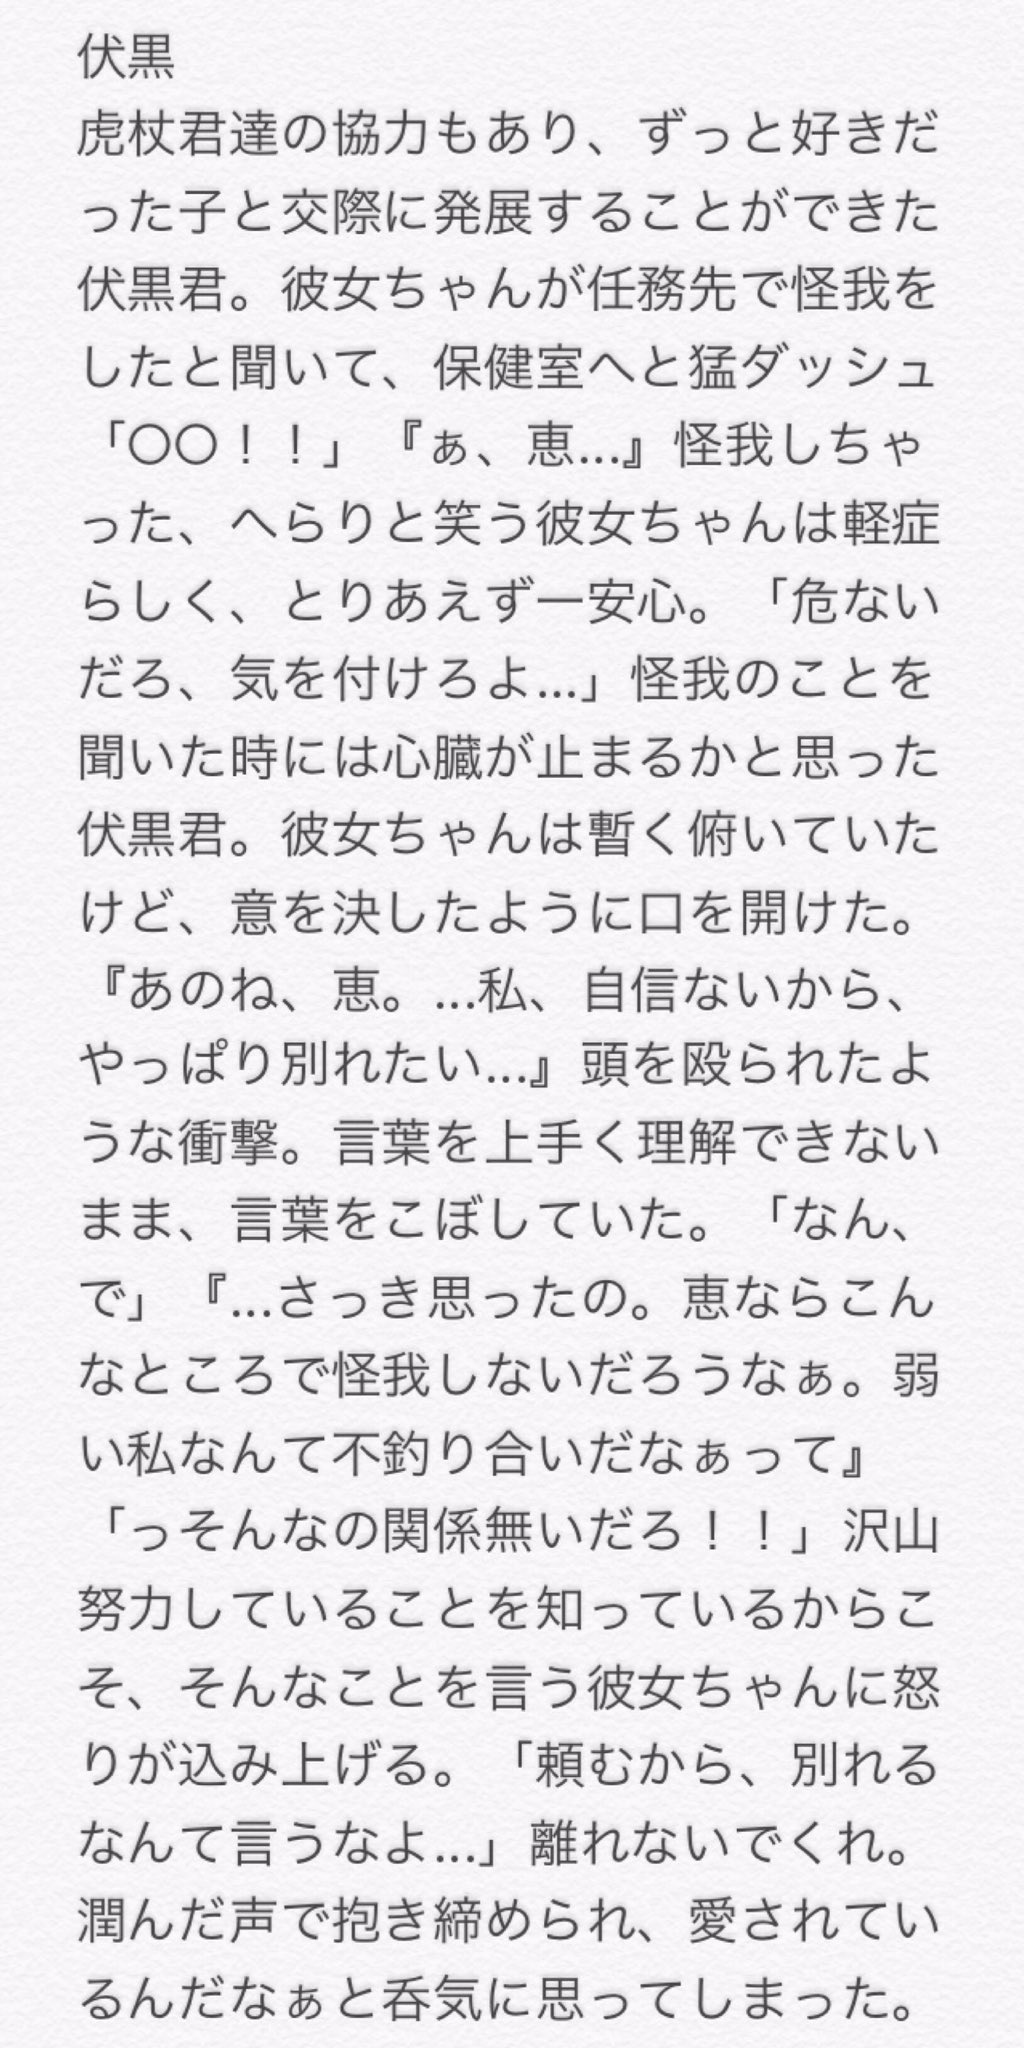 伏黒
虎杖君達の協力もあり、ずっと好きだ
った子と交際に発展することができた
伏黒君。彼女ちゃんが任務先で怪我を
したと聞いて、保健室へと猛ダッシュ
「〇〇！！」『ぁ、恵...』怪我しちゃ
った、へらりと笑う彼女ちゃんは軽症
らしく、とりあえず一安心。「危ない
だろ、気を付けろよ...」怪我のことを
聞いた時には心臓が止まるかと思った
伏黒君。彼女ちゃんは暫く俯いていた
けど、意を決したように口を開けた。
『あのね、恵。...私、自信ないから、
やっぱり別れたい...』頭を殴られたよ
うな衝撃。言葉を上手く理解できない
まま、言葉をこぼしていた。「なん、
で」『...さっき思ったの。恵ならこん
なところで怪我しないだろうなぁ。弱
い私なんて不釣り合いだなぁって』
「っそんなの関係無いだろ！！」沢山
努力していることを知っているからこ
そ、そんなことを言う彼女ちゃんに怒
りが込み上げる。「頼むから、別れる
なんて言うなよ...」離れないでくれ。
潤んだ声で抱き締められ、愛されてい
るんだなぁと呑気に思ってしまった。